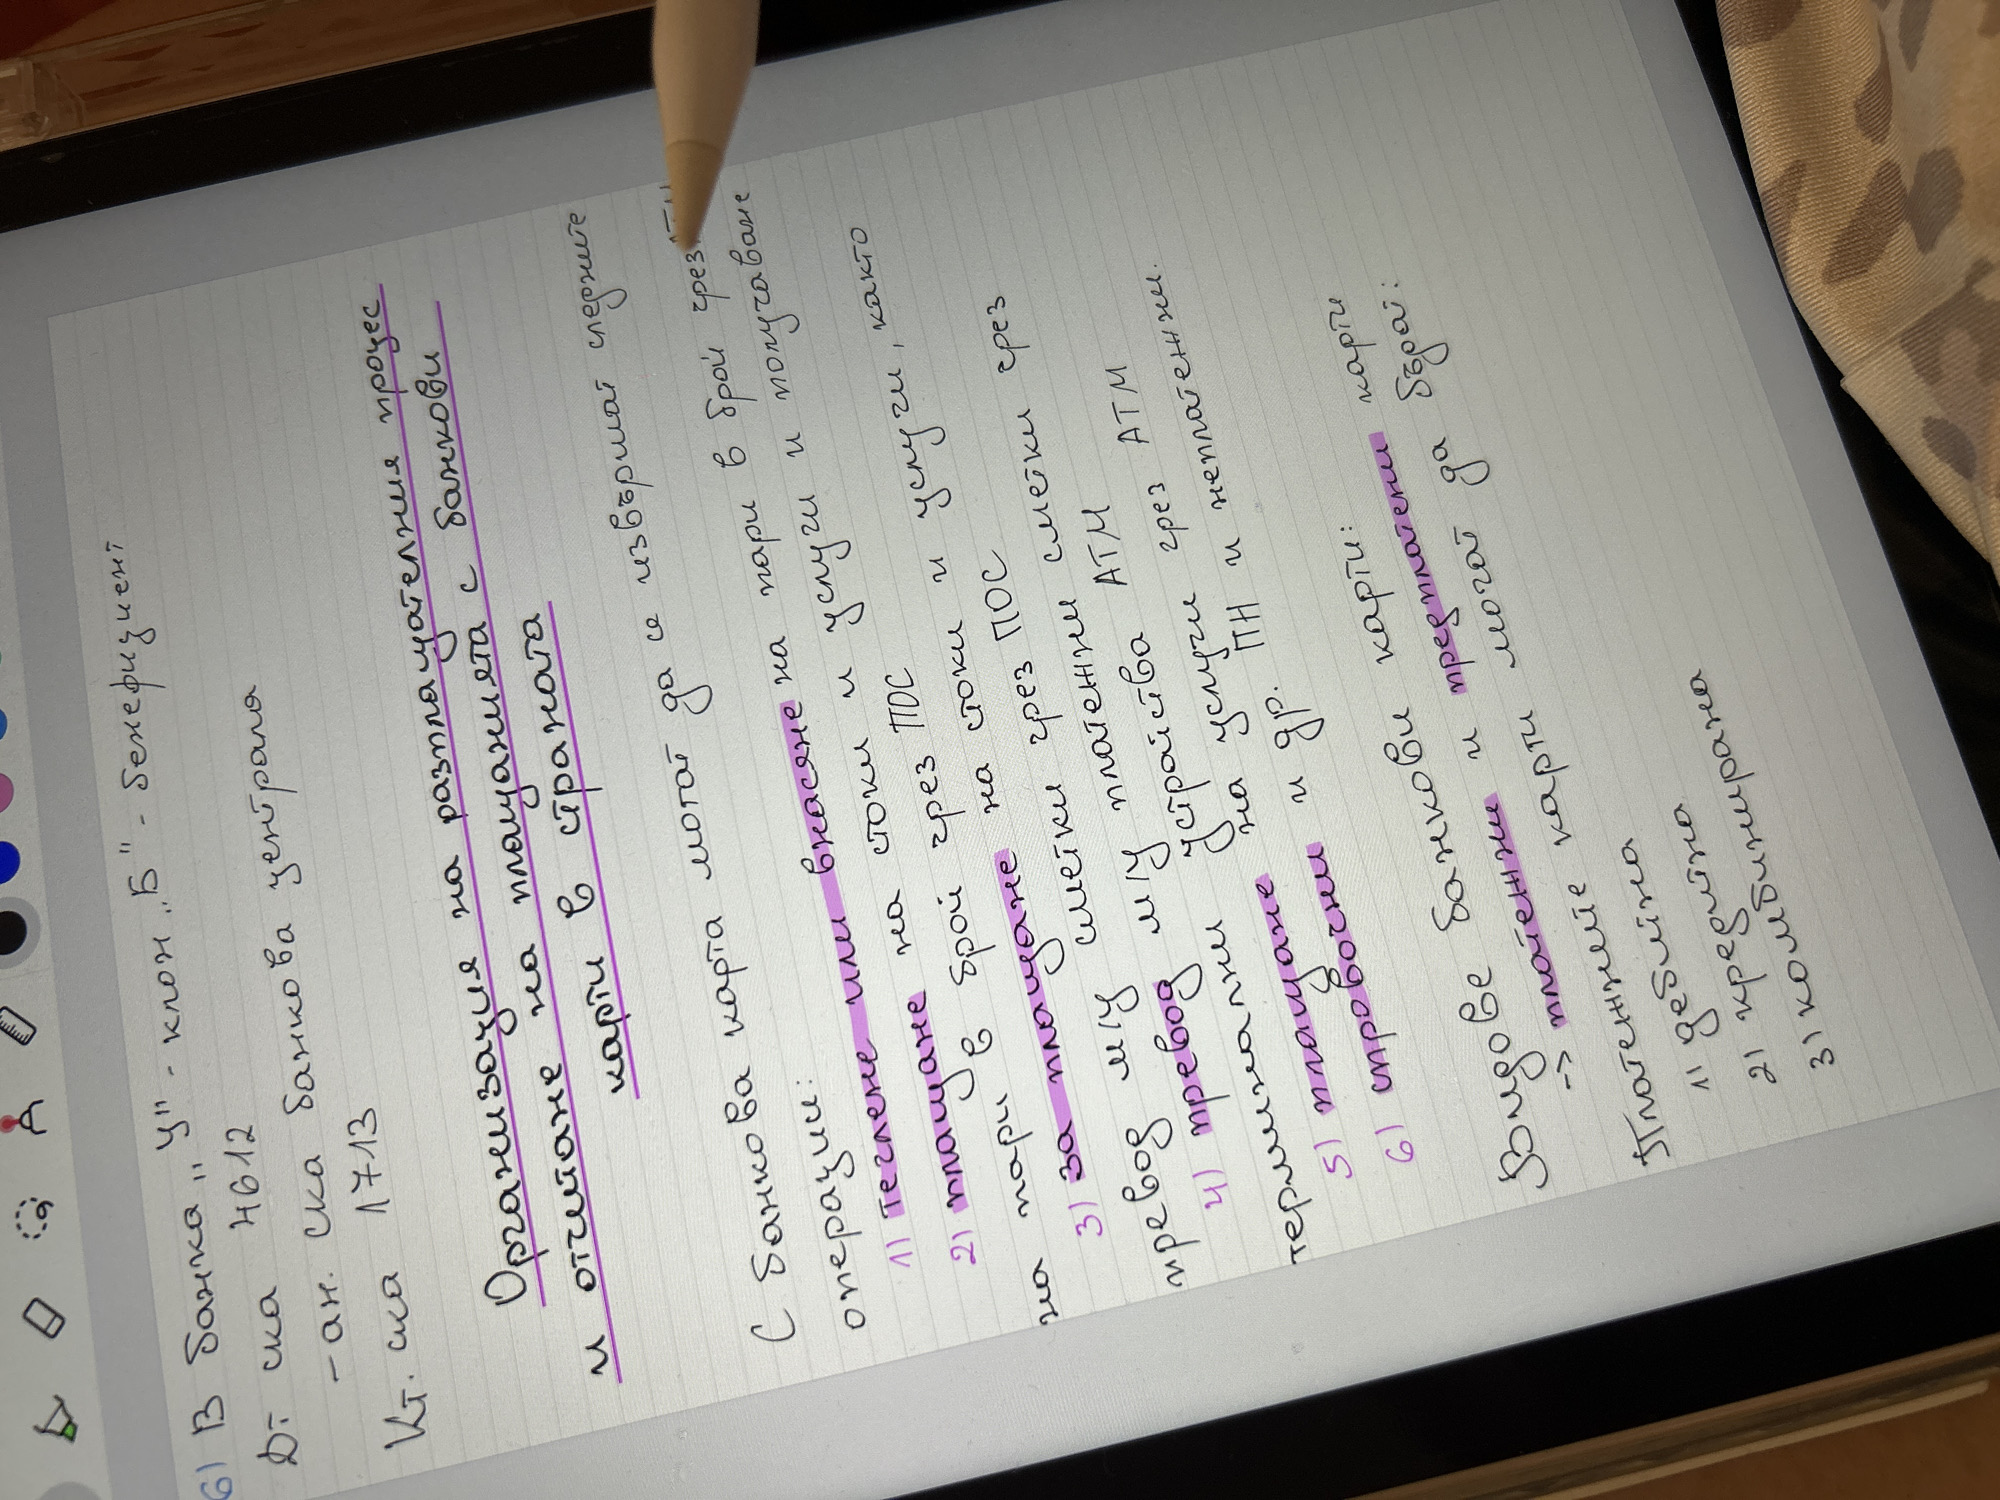 6) В банка „У" - клон „Б" - бенефициент
Дт с/ка 4612
- ан. с/ка банкова централа
Кт. с/ка 1713
Организация на разплащателния процес
и отчитане на плащанията с банкови
карти в страната
С банкова карта могат да се извършат следните
операции:
1) теглене или внасяне на пари в брой чрез
2) плащане на стоки и услуги и получаване
на пари в брой чрез ПОС
3) за плащане на стоки и услуги, както
превод м/у сметки чрез ПОС
4) превод м/у платежни сметки чрез
терминални устройства АТМ
5) плащане на услуги чрез АТМ
6) справочни и др. ПН и неплатежни.
Видове банкови карти:
-> платежни и предплатени карти
Платежните карти могат да бъдат:
1) дебитна
2) кредитна
3) комбинирана